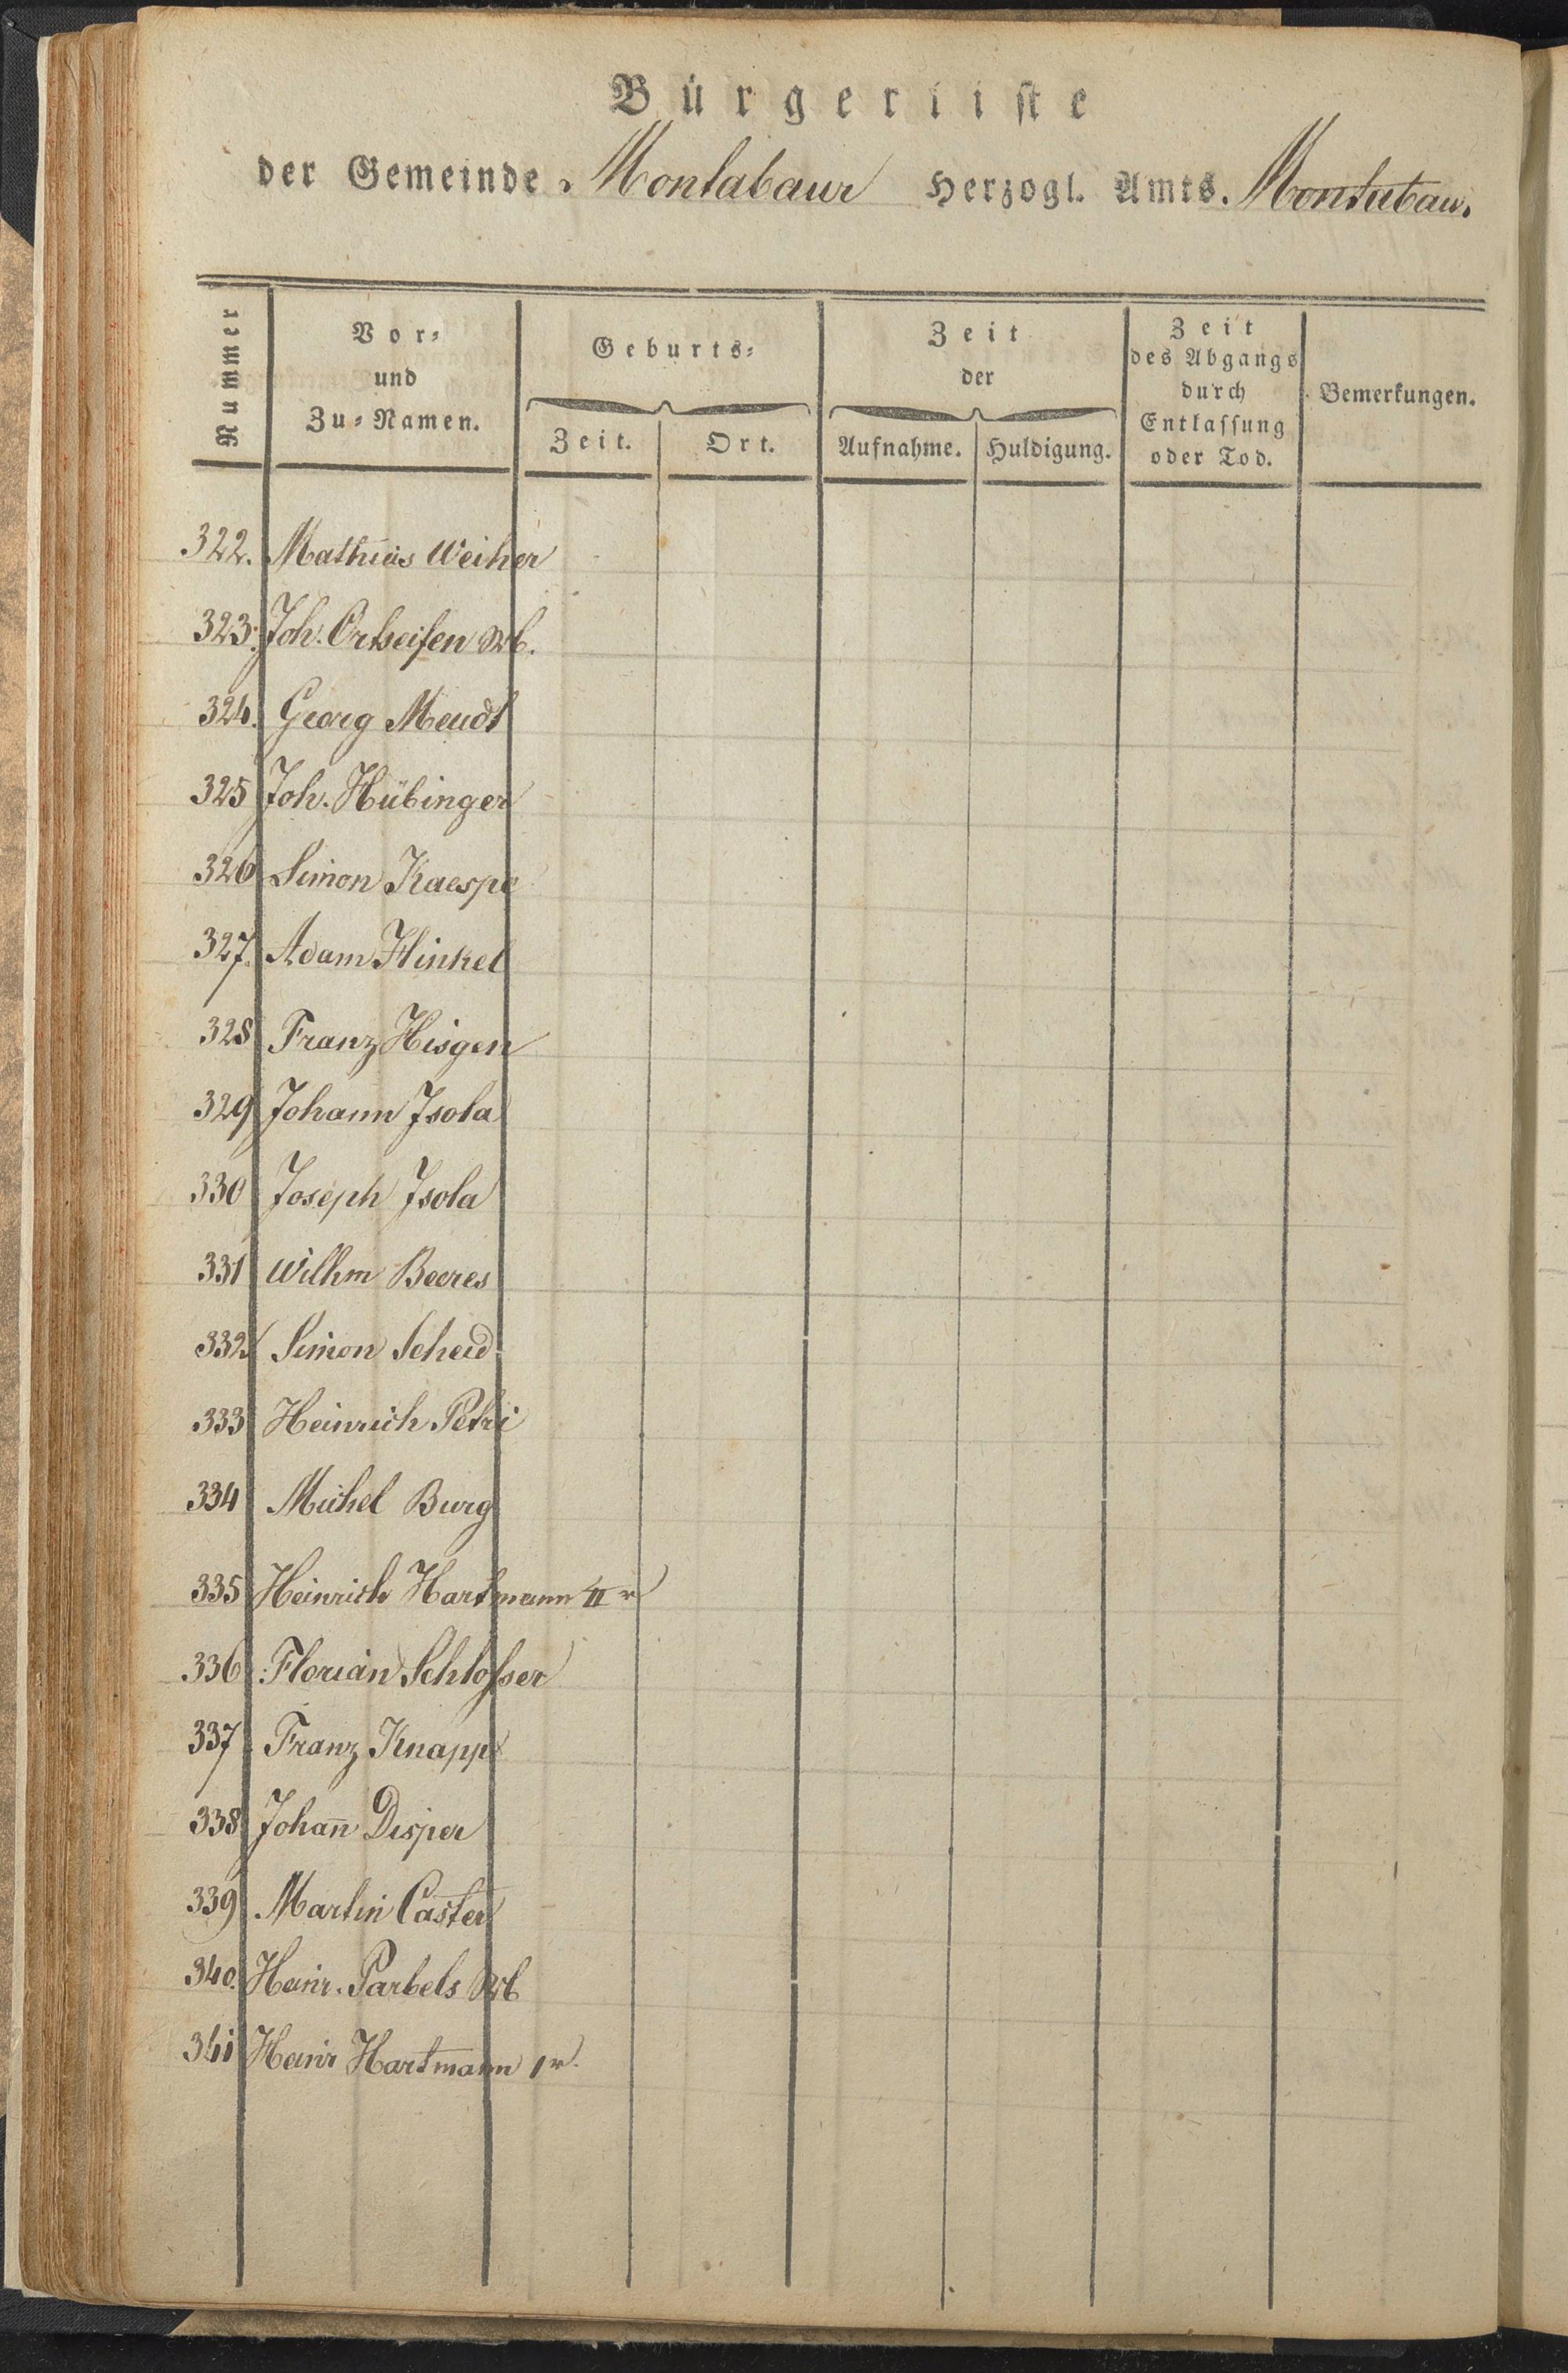 Bürgerliste
der Gemeinde Montabaur Herzogl. Amts. Montabaur
Nummer
Vor-
und
Zu-Namen.
Geburts-
Zeit.
Ort.
Zeit
der
Aufnahme.
Huldigung.
Zeit
des Abgangs
durch
Entlassung
oder Tod.
Bemerkungen.
322. Mathias Weiher
323. Joh. Ortseifen Wb.
324. Georg Meudt
325 Joh. Hübinger
326 Simon Kaespe
327. Adam Hinkel
328 Franz Hisgen
329 Johann Isola
330 Joseph Isola
331 Wilhm Beeres
332. Simon Scheid
333 Heinrich Petri
334 Michel Burg
335 Heinrich Hartmann IIr
336 Florian Schlosser
337 Franz Knapp
338 Johan̄ Disper
339 Martin Caster
340. Heinr. Parbels Wb
341 Heinr Hartmann 1r.